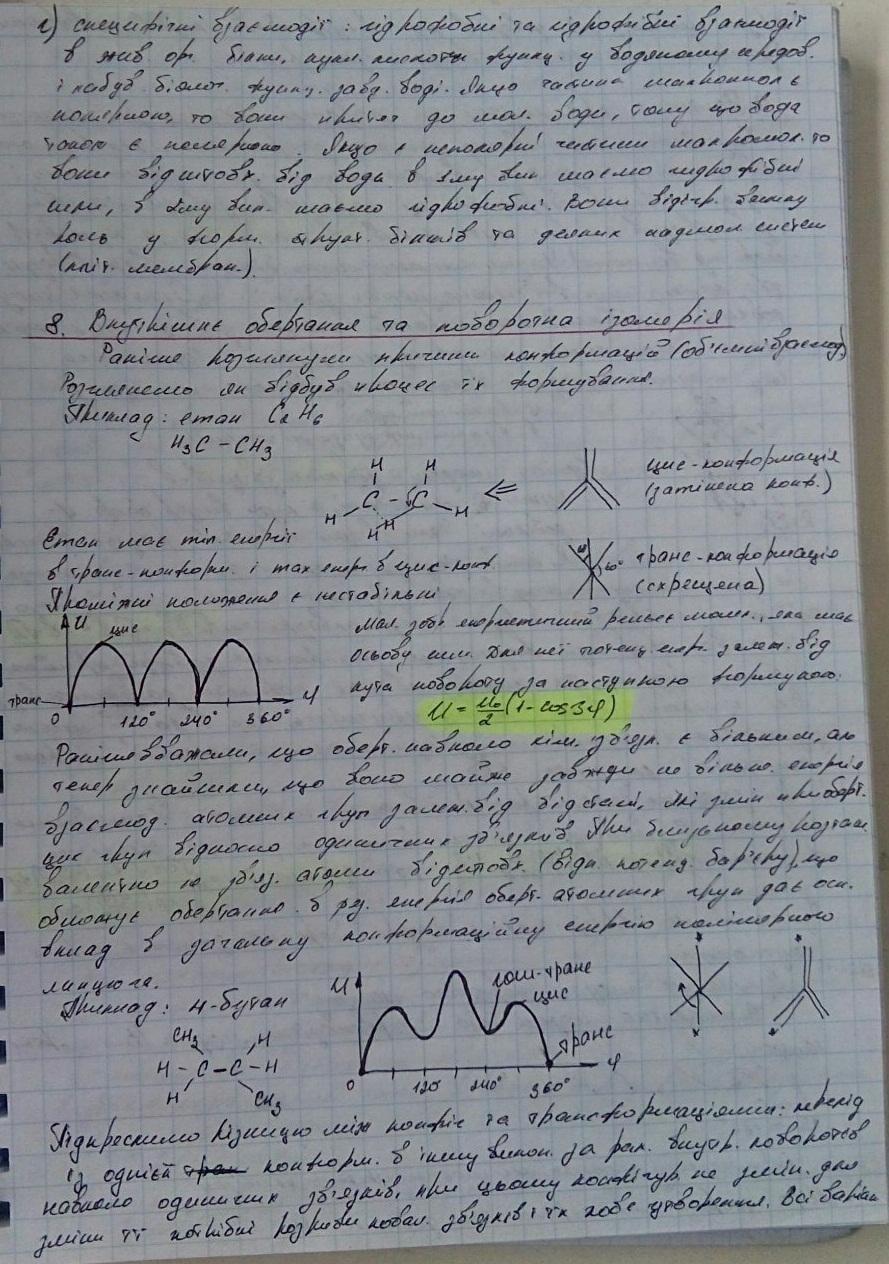 г) специфічні взаємодії : гідрофобні та гідрофільні взаємодії
в жив. орг. білки, нукл. кислоти функц. у водяному середов.
і набув. біолог. функц. завд. воді. Якщо частина макромол. є
полярною, то вони притяг. до мол. води, тому що вода
також є полярною. Якщо є неполярні частини макромол. то
вони відштовх. від води в яму вип. маємо гідрофільні
в яму вип. маємо гідрофобні. Вони відігр. велику
роль у форм. структ. білків та деяких надмол. систем
(кліт. мембран.).
8. Внутрішнє обертання та поворотна ізомерія
Раніше розглянули причини конформацій (об'ємні взаємод.)
Розглянемо як відбув. процес їх формування.
Приклад : етан C2H6
H3C – CH3
H H
C – C
H H H H
⇐
цис-конформація
(затінена конф.)
Етан має min. енергії
в транс-конформ. і max енер. в цис-конф.
Проміжні положення є нестабільні
60°
транс-конформація
(схрещена)
U цис
транс
0 120° 240° 360° φ
Мал. зобр. енергетичний рельєф молек., яка має
осьову сим. Для неї потенц. енер. залеж. від
кута повороту за наступною формулою.
U = U0/2 (1 - cos3φ)
Раніше вважали, що оберт. навколо хім. зв'язк. є вільним, але
тепер знайшли, що воно майже завжди не вільне. енергія
взаємод. атомних груп залеж. від відстані, які змін. при оберт.
цих груп відносно одиничних зв'язків При близькому розташ.
валентно не зв'яз. атоми відштовх. (відп. потенц. бар'єру), що
обмежує обертання. В рез. енергія оберт. атомних груп дає осн.
вклад в загальну конформаційну енергію полімерного
ланцюга.
Приклад : н-бутан
CH3 H
H – C – C – H
H CH3
U гош-транс
цис
транс
0 120° 240° 360° φ
Підкреслимо різницю між конфіг та трансформаціями: перехід
із однієї конформ. в іншу викон. за рах. внутр. поворотів
навколо одиничних зв'язків, при цьому конфігур. не змін. для
зміни її потрібні розриви ковал. зв'язків і їх нове утворення. Всі варіан